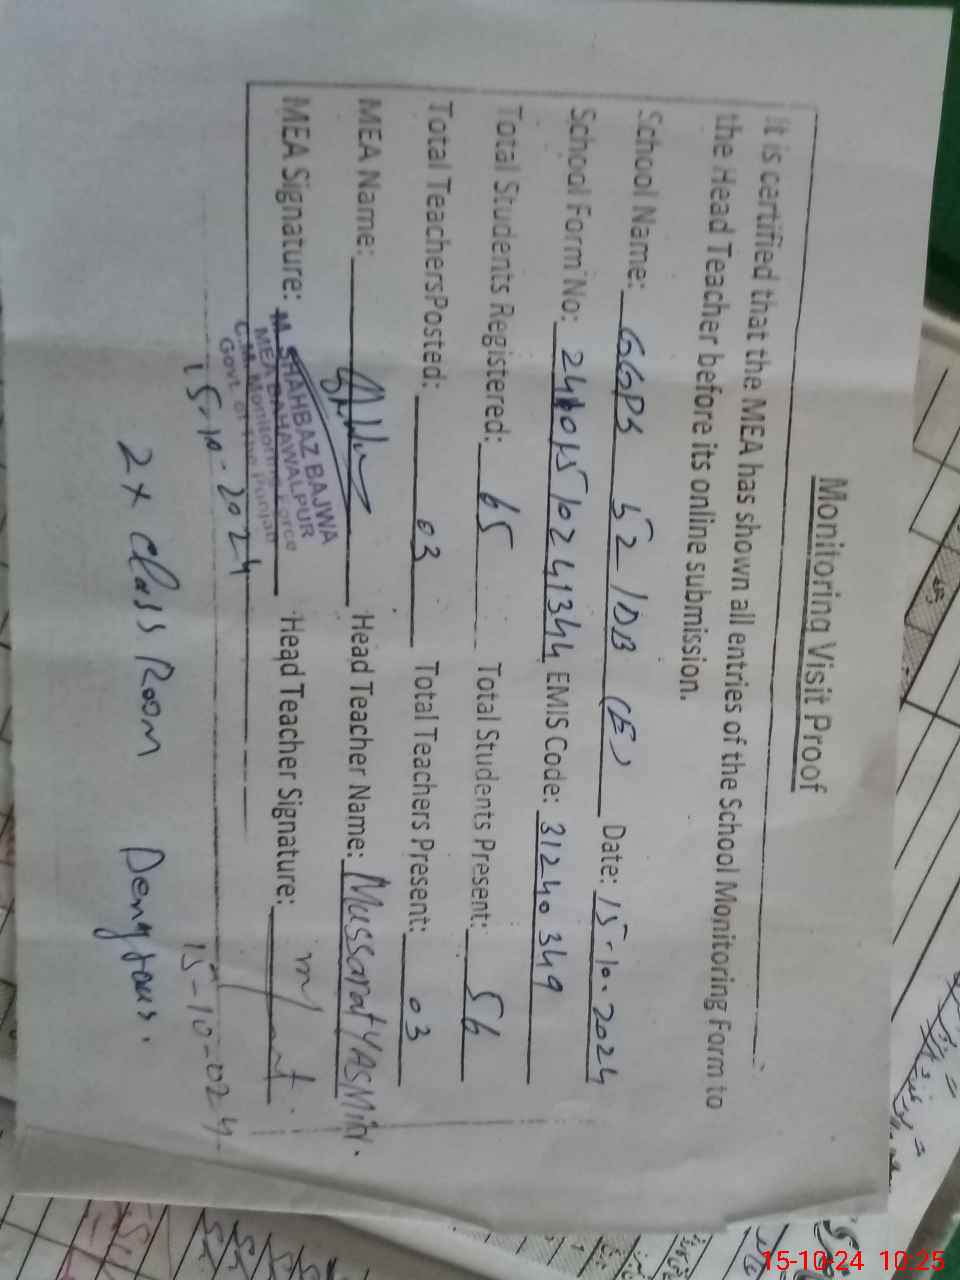 Monitoring Visit Proof
It is certified that the MEA has shown all entries of the School Monitoring Form to
the Head Teacher before its online submission.
School Name: GGPS 52/DB (E) Date: 15-10-2024
School Form No: EMIS Code: 31240349
Total Students Registered: 65 Total Students Present: 56
Total TeachersPosted: 03 Total Teachers Present: 03
MEA Name: Head Teacher Name: Mussarat YASMin.
MEA Signature: Head Teacher Signature:
M SHAHBAZ BAJWA
MEA BAHAWALPUR
C.M Monitoring Force
Govt. of The Punjab
15-10-2024 15-10-024
2x Class Room
15-10-24 10:25